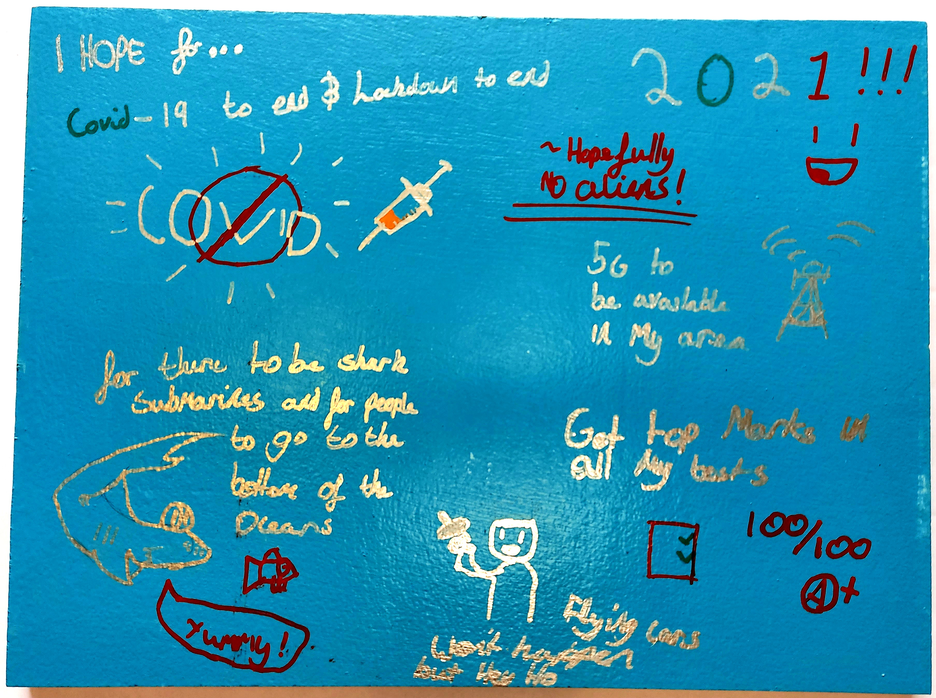 I HOPE for...
2021!!!
Covid-19 to end & Lockdown to end
~Hopefully
NO aliens!
COVID
5G to
be available
in My area
for there to be shark
submarines and for people
to go to the
bottom of the
Oceans
Get top Marks in
all My tests
100/100
A+
Yummy!
Flying cars
Won't happen
but Hey Ho